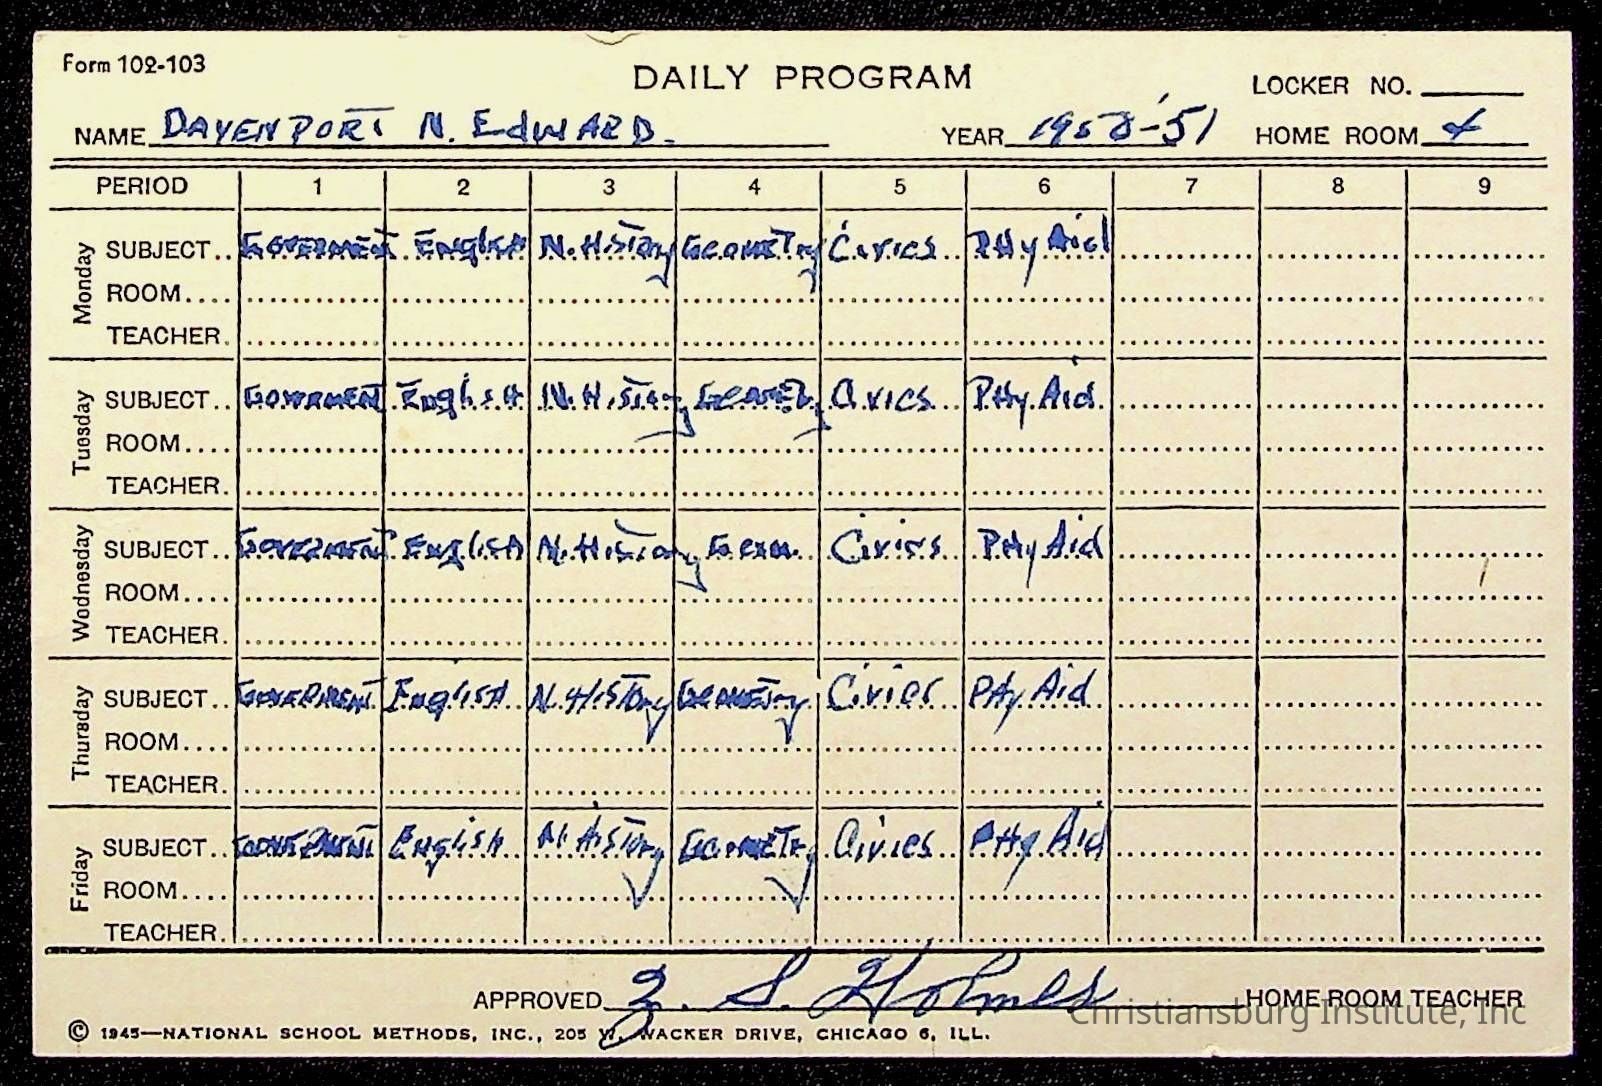 Form 102-103
DAILY PROGRAM
LOCKER NO.
NAME DAVENPORT N. EdWARD. YEAR 1950-'51 HOME ROOM 4
PERIOD 1 2 3 4 5 6 7 8 9
Monday
SUBJECT.. GOVERNMENT English N. History Geometry Civics PHy Aid
ROOM....
TEACHER.
Tuesday
SUBJECT.. GOVRNMENT English N. History Civics PHy Aid
ROOM....
TEACHER.
Wednesday
SUBJECT.. GOVERNMENT English N. History Geom. Civics PHy Aid
ROOM....
TEACHER.
Thursday
SUBJECT.. GOVERNMENT English N. History Geometry Civics PHy Aid
ROOM....
TEACHER.
Friday
SUBJECT.. GOVERNMENT English N. History Geometry Civics PHy Aid
ROOM....
TEACHER.
APPROVED Z. S. Holmes HOME ROOM TEACHER
Christiansburg Institute, Inc
© 1945—NATIONAL SCHOOL METHODS, INC., 205 W. WACKER DRIVE, CHICAGO 6, ILL.